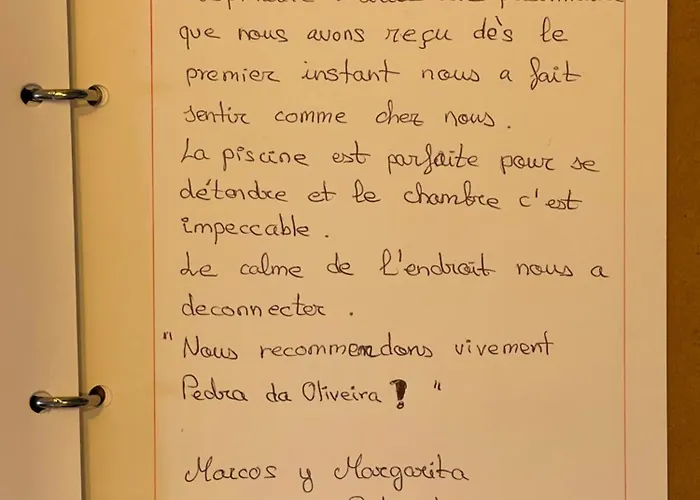 que nous avons reçu dès le
premier instant nous a fait
sentir comme chez nous.
La piscine est parfaite pour se
détendre et le chambre c'est
impeccable.
Le calme de l'endroit nous a
deconnecter.
"Nous recommendons vivement
Pedra da Oliveira! "
Marcos y Margarita